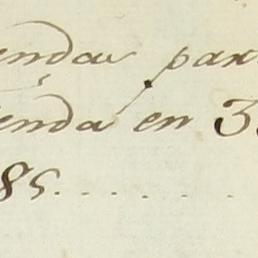 endas par
enda en 3
85.......